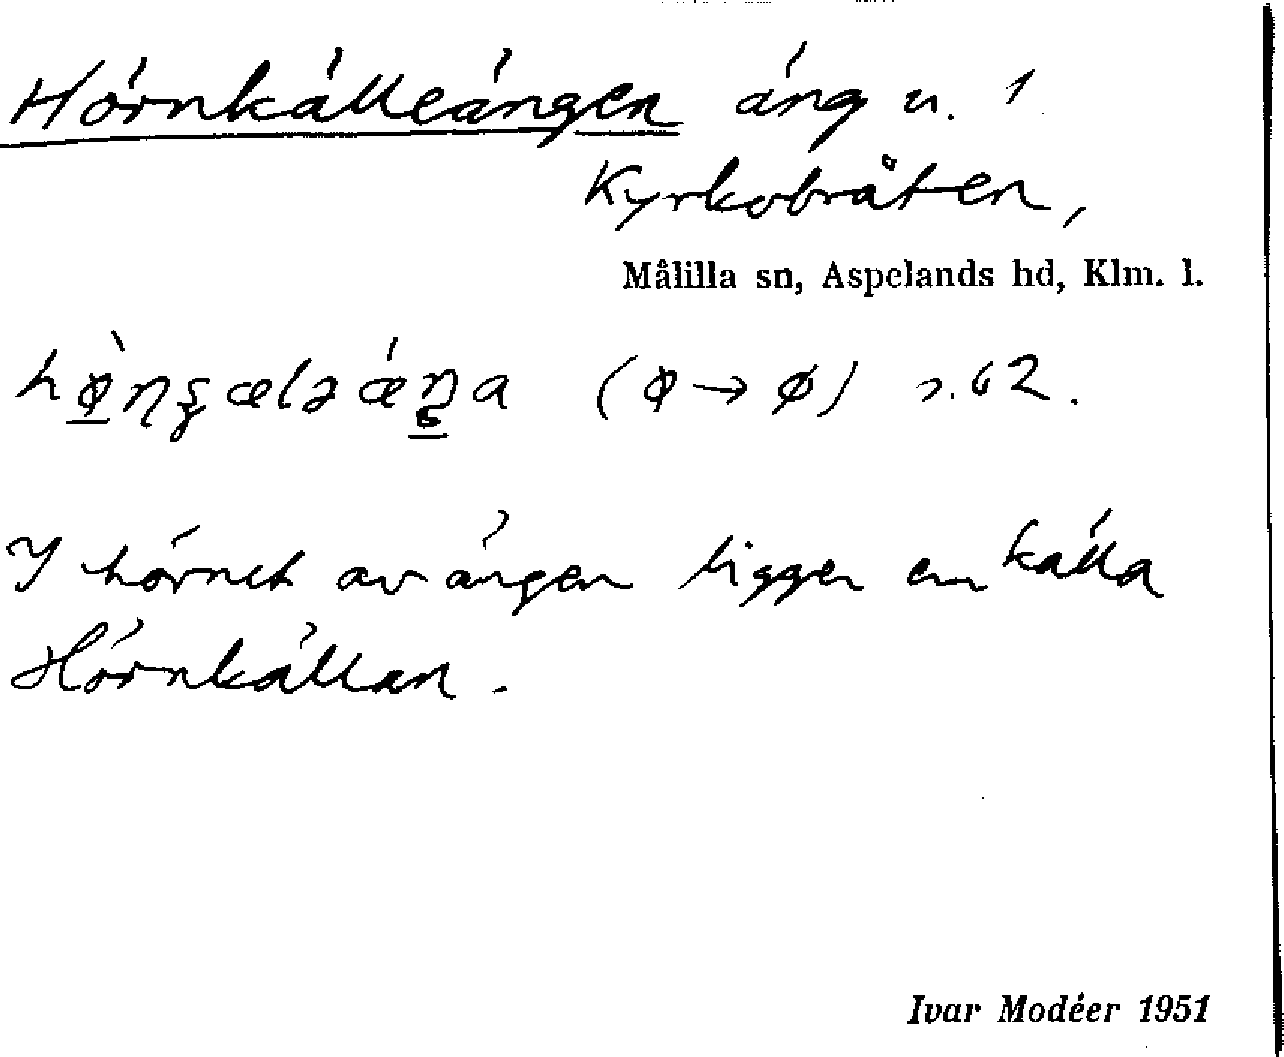 Hörnkälleängen äng u. 1
Kyrkobråten,
Målilla sn, Aspelands hd, Klm. l.
I hörnet av ängen ligger en källa
Hörnkällan.
Ivar Modéer 1951